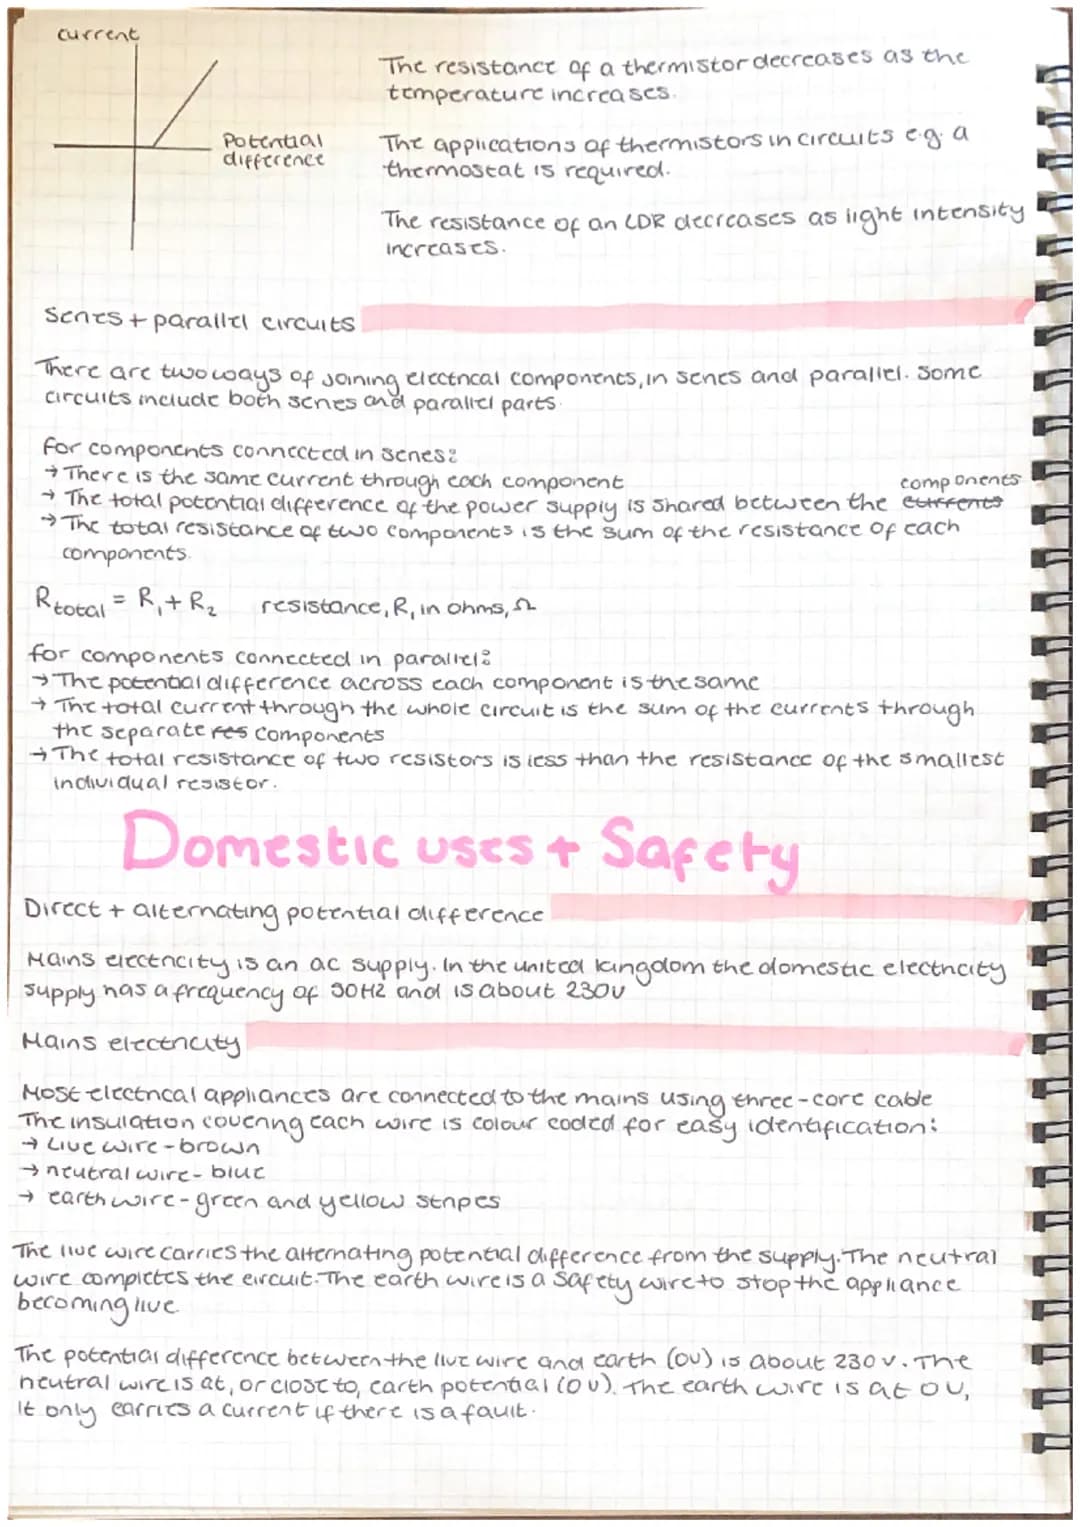 current
Potential
difference
The resistance of a thermistor decreases as the
temperature increases.
The applications of thermistors in circuits e.g. a
thermostat is required.
The resistance of an LDR decreases as light intensity
increases.
Series + parallel circuits
There are two ways of joining electrical components, in series and parallel. Some
circuits include both series and parallel parts.
for components connected in series:
→ There is the same current through each component
components
→ The total potential difference of the power supply is shared between the currents
→ The total resistance of two components is the sum of the resistance of each
components.
Rtotal = R₁ + R₂ resistance, R, in ohms, Ω
for components connected in parallel:
→ The potential difference across each component is the same
→ The total current through the whole circuit is the sum of the currents through
the separate res components
→ The total resistance of two resistors is less than the resistance of the smallest
individual resistor.
Domestic uses + Safety
Direct + alternating potential difference
Mains electricity is an ac supply. In the united kingdom the domestic electricity
supply has a frequency of 50Hz and is about 230V
Mains electricity
Most electrical appliances are connected to the mains using three-core cable
The insulation covering each wire is colour coded for easy identification:
→ Live wire - brown
→ neutral wire - blue
→ earth wire - green and yellow stripes
The live wire carries the alternating potential difference from the supply. The neutral
wire completes the circuit. The earth wire is a safety wire to stop the appliance
becoming live.
The potential difference between the live wire and earth (0V) is about 230V. The
neutral wire is at, or close to, earth potential (0V). The earth wire is at 0V,
it only carries a current if there is a fault.